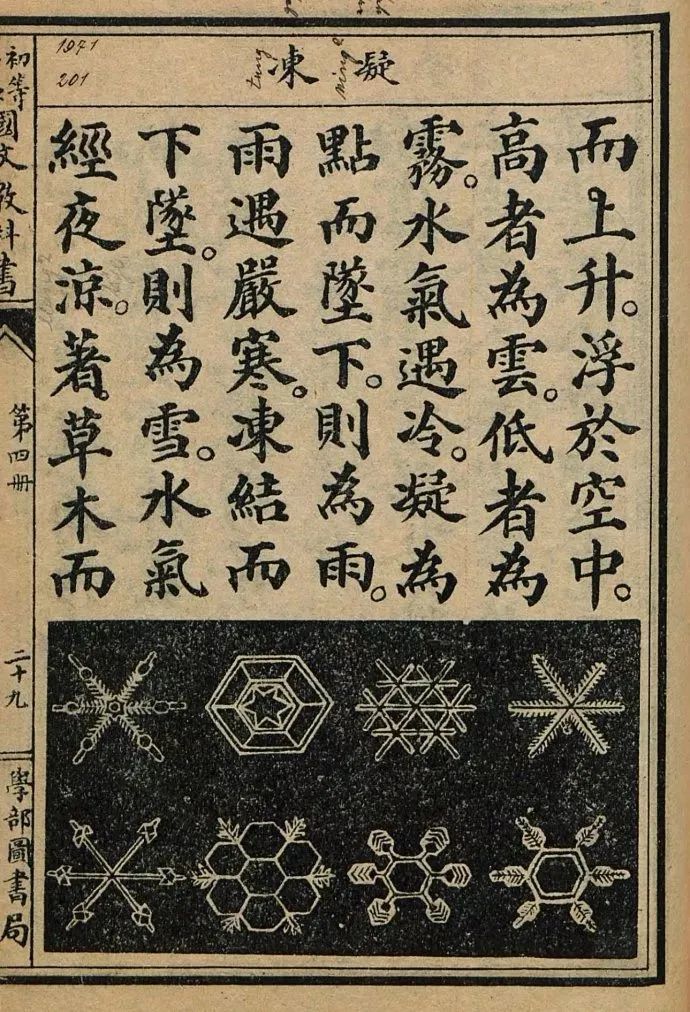 凝凍
ning
tung
1071
201
而上升。浮於空中。
高者為雲。低者為
霧。水氣遇冷。凝為
點而墜下。則為雨。
雨遇嚴寒。凍結而
下墜。則為雪。水氣
經夜涼。著草木而
初等國文教科書
第四冊
二十九
學部圖書局